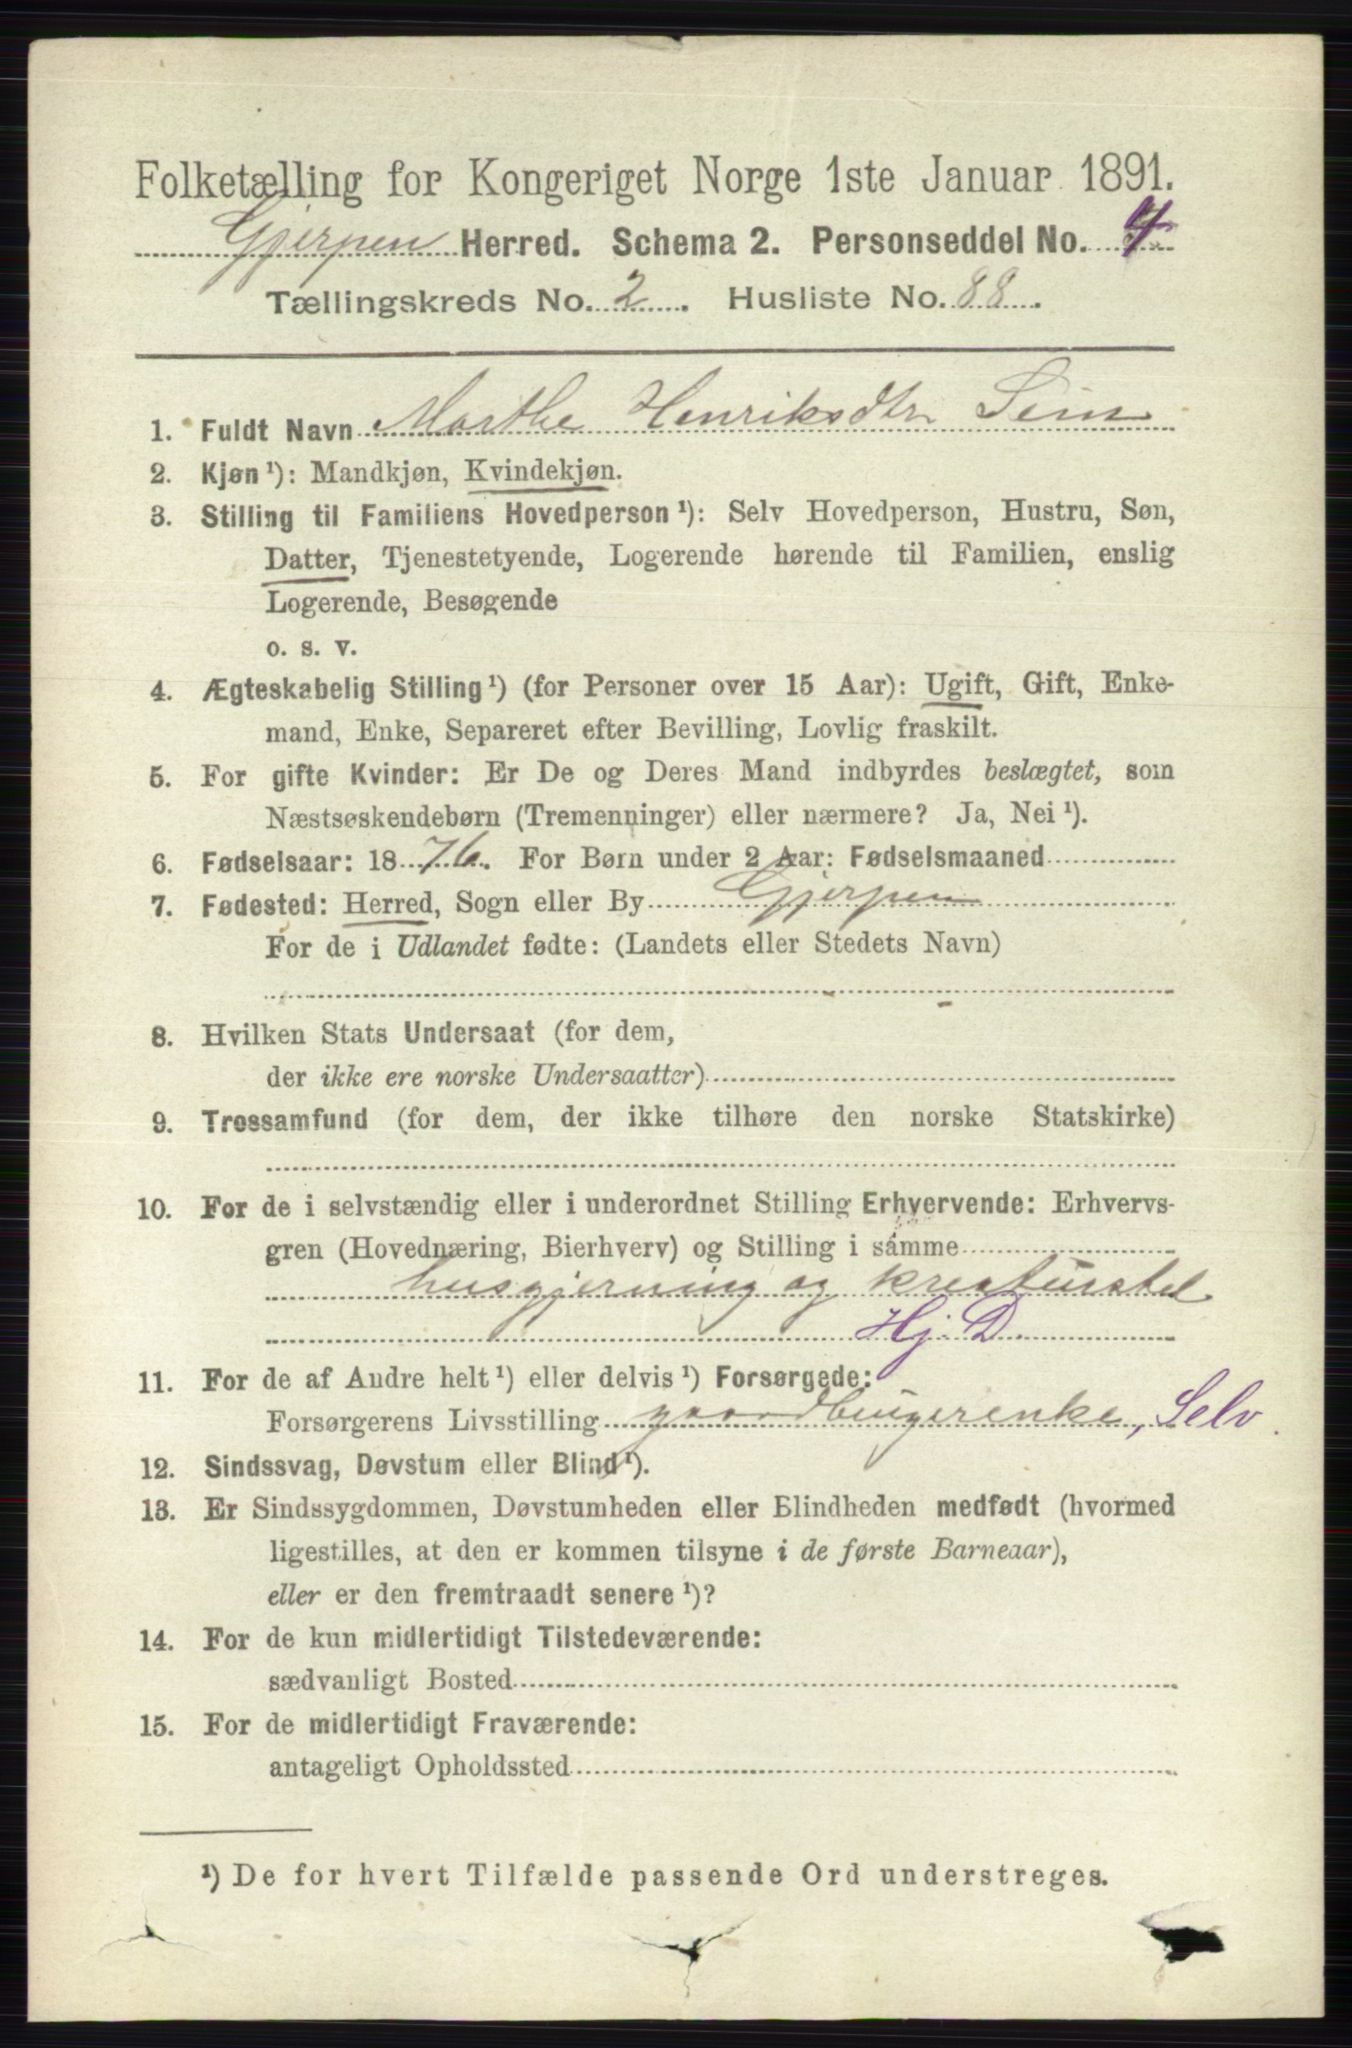 Folketælling for Kongeriget Norge 1ste Januar 1891.
Gjerpen Herred. Schema 2. Personseddel No. 4
Tællingskreds No. 2. Husliste No. 88.
1. Fuldt Navn Marthe Henriksdtr Sem
2. Kjøn ¹): Mandkjøn, Kvindekjøn.
3. Stilling til Familiens Hovedperson ¹): Selv Hovedperson, Hustru, Søn,
Datter, Tjenestetyende, Logerende hørende til Familien, enslig
Logerende, Besøgende
o. s. v.
4. Ægteskabelig Stilling ¹) (for Personer over 15 Aar): Ugift, Gift, Enke-
mand, Enke, Separeret efter Bevilling, Lovlig fraskilt.
5. For gifte Kvinder: Er De og Deres Mand indbyrdes beslægtet, som
Næstsøskendebørn (Tremenninger) eller nærmere? Ja, Nei ¹).
6. Fødselsaar: 1876. For Børn under 2 Aar: Fødselsmaaned
7. Fødested: Herred, Sogn eller By Gjerpen
For de i Udlandet fødte: (Landets eller Stedets Navn)
8. Hvilken Stats Undersaat (for dem,
der ikke ere norske Undersaatter)
9. Trossamfund (for dem, der ikke tilhøre den norske Statskirke)
10. For de i selvstændig eller i underordnet Stilling Erhvervende: Erhvervs-
gren (Hovednæring, Bierhverv) og Stilling i samme
husgjerning og kreaturstel
Hj. D.
11. For de af Andre helt ¹) eller delvis ¹) Forsørgede:
Forsørgerens Livsstilling gaardbrugerenke, Selv.
12. Sindssvag, Døvstum eller Blind ¹).
13. Er Sindssygdommen, Døvstumheden eller Blindheden medfødt (hvormed
ligestilles, at den er kommen tilsyne i de første Barneaar),
eller er den fremtraadt senere ¹)?
14. For de kun midlertidigt Tilstedeværende:
sædvanligt Bosted
15. For de midlertidigt Fraværende:
antageligt Opholdssted
¹) De for hvert Tilfælde passende Ord understreges.